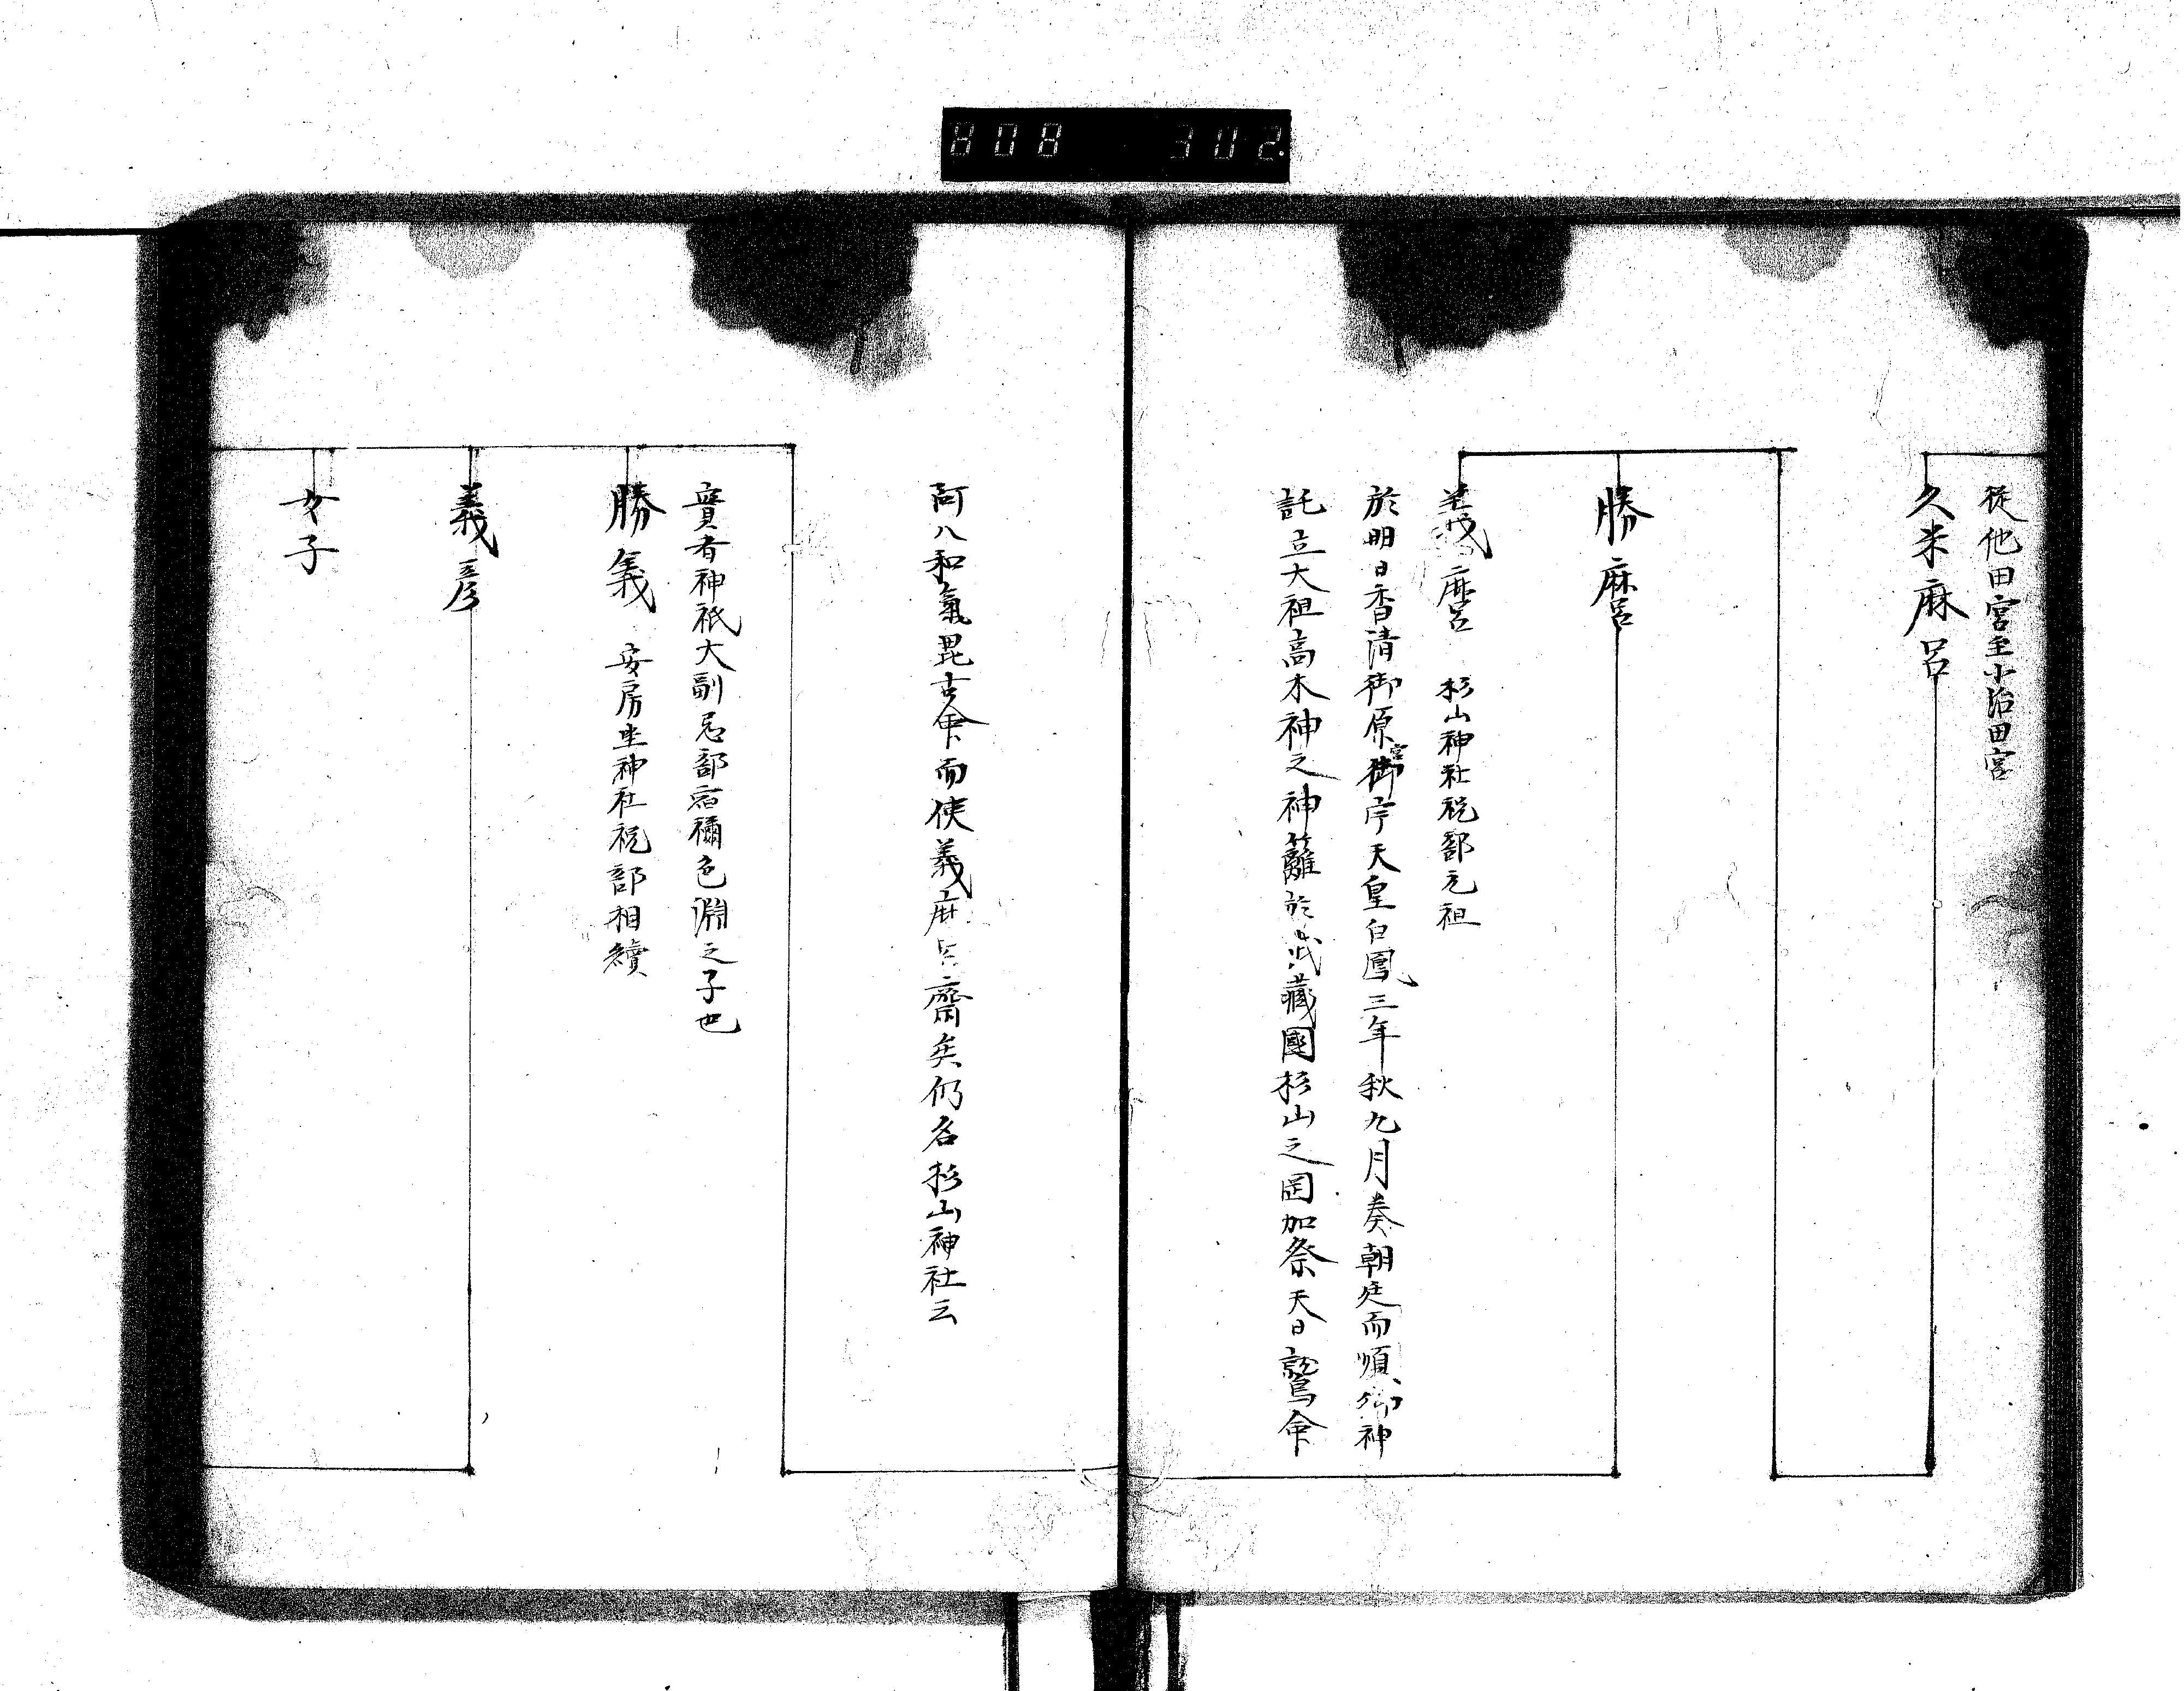 808 302
従他田宮至小治田宮
久米麻呂
勝麿
義麿 杉山神社祝部元祖
於明日香清御原宮御宇天皇白鳳三年秋九月奏朝廷而順御神
託立大祖高木神之神籬於武藏國杉山之岡加祭天日鷲命
阿八和氣毘古命而使義麻呂齋矣仍名杉山神社云
實者神祇大副忌部宿禰色淵之子也
勝義 安房坐神社祝部相續
義彦
女子